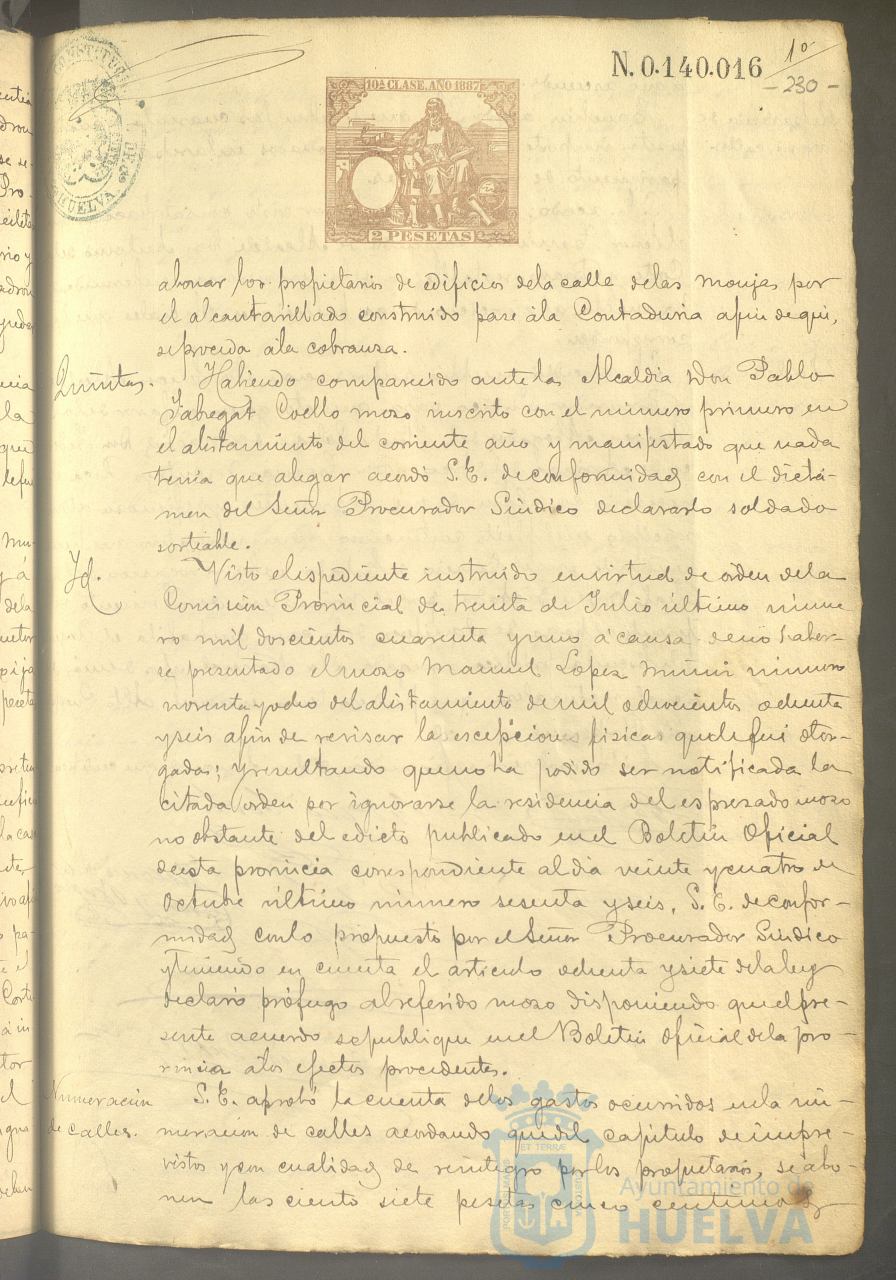 N. 0.140.016
1º
- 230 -
10ª CLASE. AÑO 1887
2 PESETAS
HUELVA
abonar los propietarios de edificios dela calle delas Monjas por
el alcantarillado construido pase ála Contaduria afin de qui,
se proceda ála cobranza.
Quintas.
Habiendo comparecido ante la Alcaldia Don Pablo
Fabregat Coello mozo inscrito con el número primero en
el alistamiento del corriente año y manifestado que nada
tenia que alegar acordó S.E. de conformidad con el dictá-
men del Señor Procurador Sindico declararlo soldado
sorteable.
Id.
Visto el espediente instruido envirtud de orden dela
Comision Provincial de treinta de Julio último núme
ro mil doscientos cuarenta yuno á causa deno haber-
se presentado el mozo Manuel Lopez Muñiz número
noventa yocho del alistamiento demil ochocientos ochenta
yseis afin de revisar las escepciones fisicas quele fui otor-
gadas; yresultando queno ha podido ser notificada la
citada orden por ignorarse la residencia del espresado mozo
no obstante del edicto publicado en el Boletin Oficial
deesta provincia correspondiente al dia veinte ycuatro de
Octubre último número sesenta yseis, S.E. deconfor-
midad conlo propuesto por el Señor Procurador Sindico
yteniendo en cuenta el articulo ochenta ysiete dela ley
declaró prófugo alreferido mozo disponiendo que el pre-
sente acuerdo sepublique en el Boletin Oficial dela pro-
vincia álos efectos procedentes.
Numeracion
de calles.
S.E. aprobó la cuenta delos gastos ocurridos enla nu-
meracion de calles acordando quedel capitulo de impre-
vistos ycon cualidad de reintegro porlos propietarios, se abo-
nen las ciento siete pesetas cinco centimos
Ayuntamiento de
HUELVA